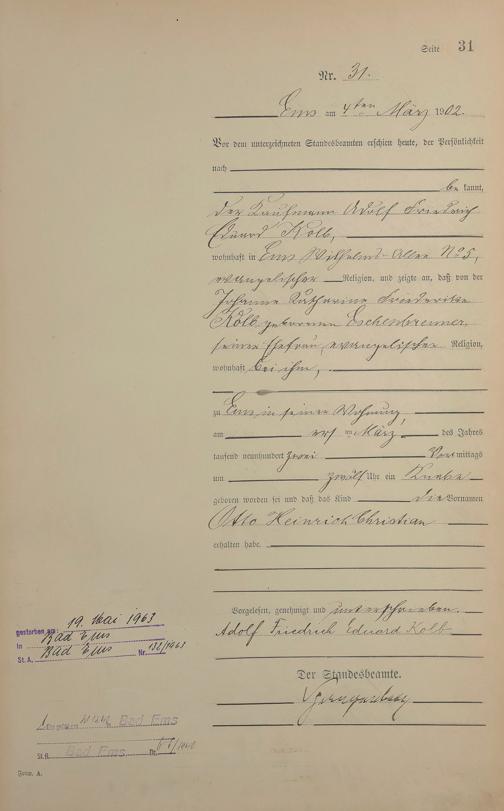 Seite 31
Nr. 31.
Ems am 4ten März 1902.
Vor dem unterzeichneten Standesbeamten erschien heute, der Persönlichkeit
nach
bekannt,
der Kaufmann Adolf Friedrich
Eduard Kolb,
wohnhaft in Ems Wilhelms-Allee No 5,
evangelischer Religion, und zeigte an, daß von der
Johanne Katharine Friederike
Kolb geborenen Eschenbrenner,
seiner Ehefrau, evangelischer Religion,
wohnhaft bei ihm,
zu Ems in seiner Wohnung,
am März des Jahres
tausend neunhundert zwei Vormittags
um zwölf Uhr ein Knabe
geboren worden sei und daß das Kind die Vornamen
Otto Heinrich Christian
erhalten habe.
Vorgelesen, genehmigt und unterschrieben.
Adolf Friedrich Eduard Kolb
Der Standesbeamte.
gestorben am: 19. Mai 1963
in Bad Ems
St. A. Bad Ems Nr. 132/1963
Bad Ems
St.A. Bad Ems Nr.
Form. A.